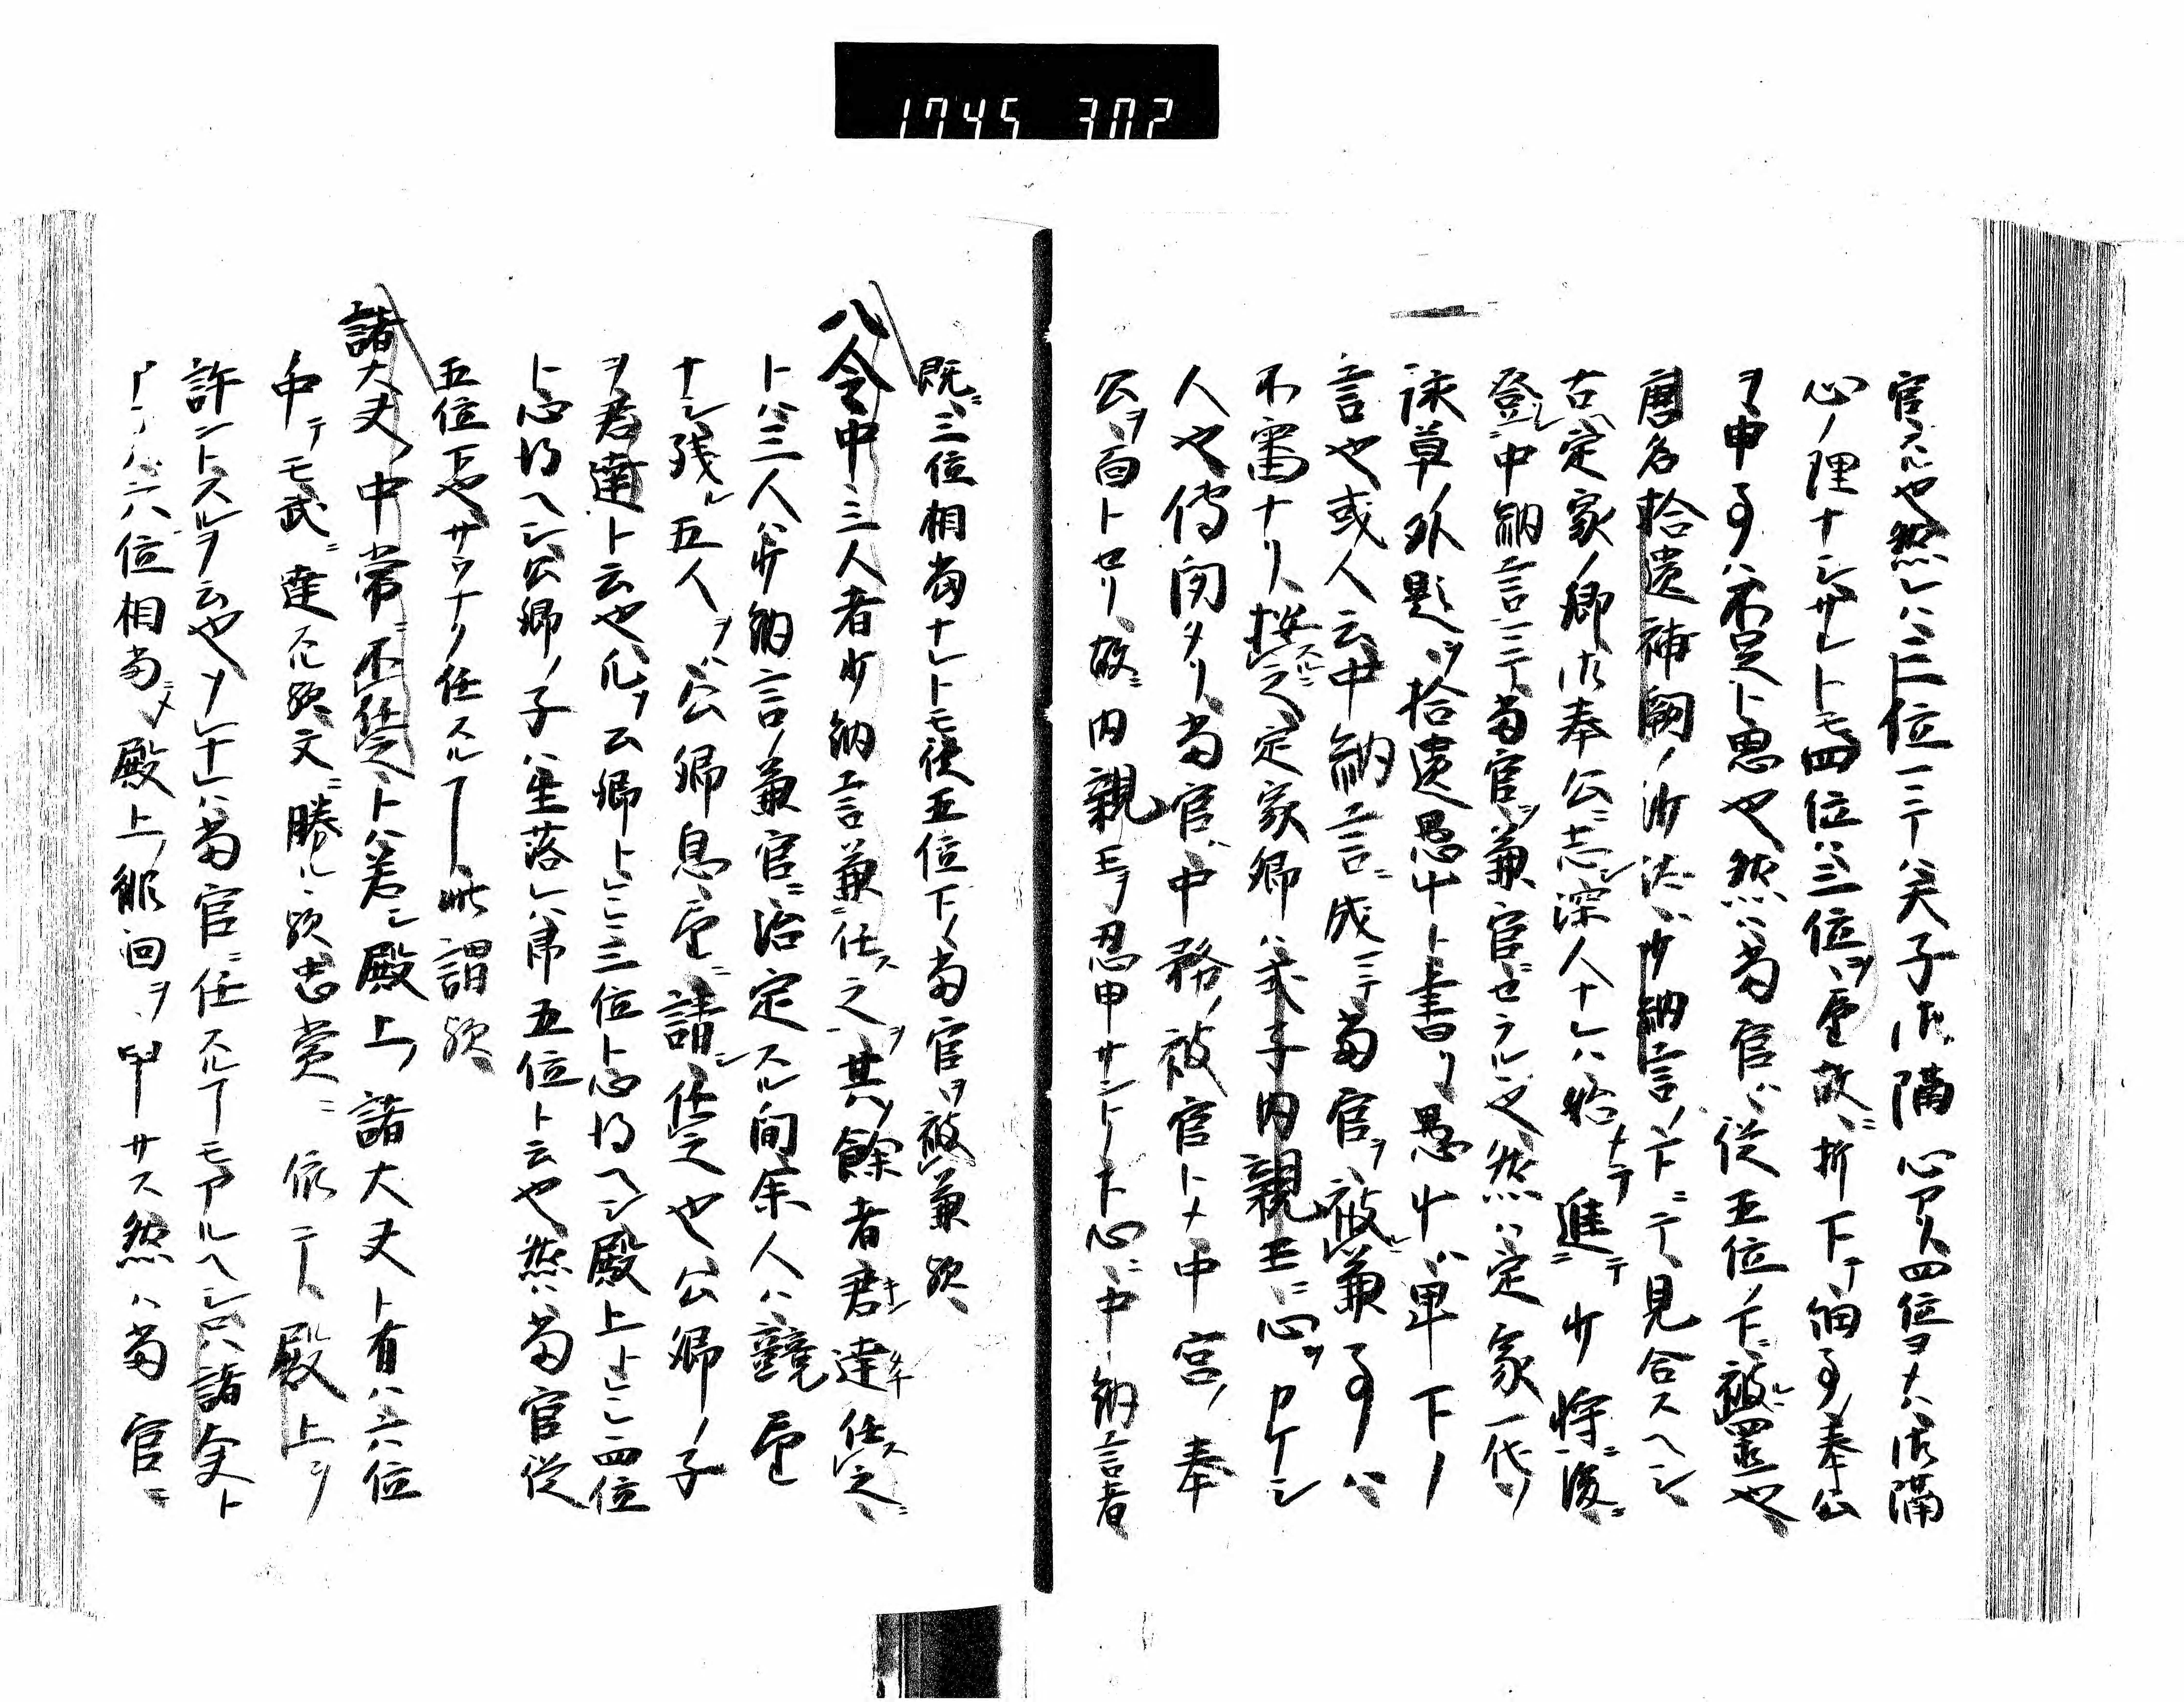 1745 307
官スル也然レハ三位ニテハ天子御隔心アリ四位ヲ大ハ御隔
心ノ理ナシサレトモ四位ハ三位ヲ望故ニ折下テ細事奉公
ヲ申事ハ不足ト思也然ハ当官ハ従五位ノ下ニ被置也
唐名拾遺補闕ノ沙汰ハ少納言ノ下ニテ見合スヘシ
古定家ノ卿御奉公ニ志シ深人ナレハ始ナラ進テ少将ニ後ニ
登中納言ニテ当官ヲ兼官セラル也然ハ定家一代ノ
詠草ノ外題ヲ拾遺愚艸ト書リ愚艸ハ卑下ノ
言也或人云中納言ニ成ニテ当官ヲ被兼事ハ
不審ナリ按スルニ之定家卿ハ式子内親王ニ心ヲカケシ
人也傳聞タリ当官ハ中務ノ被官トメ中宮ノ奉
公ヲ百トセリ故ニ内親王ヲ忍申サントノ下心ニ中納言者
既ニ三位相当ナレトモ従五位下ノ当官ヲ被兼歟
八令中三人者少納言兼任スル之ヲ其ノ餘者君キン達タチ任ス之ニ
トハ三人ハ少納言ノ兼官ニ治定スル間余人ハ競望
ナシ残ル五人ヲハ公卿息望ニ請シ任之也公卿ノ子
ヲ君達ト云也凡ソ公卿トハ三位ト心得ヘシ殿上トハ四位
ト心得ヘシ公卿ノ子ハ生落レハ帯五位ト云也然ハ当官従
五位下也サウナク任スルヿ此謂歟
諸大夫ノ中常ニ不任之トハ若シ殿上ノ諸大夫ト有ハ六位
中テモ武ニ達スル歟文ニ勝ル歟忠賞ニ依テ殿上ヲ
許ントスルヲ云也ソレナレハ当官ニ任スルヿモアルヘシ只諸大夫ト
ハ六位相当ニメ殿上ノ徘徊ヲ申サス然ハ当官ニ